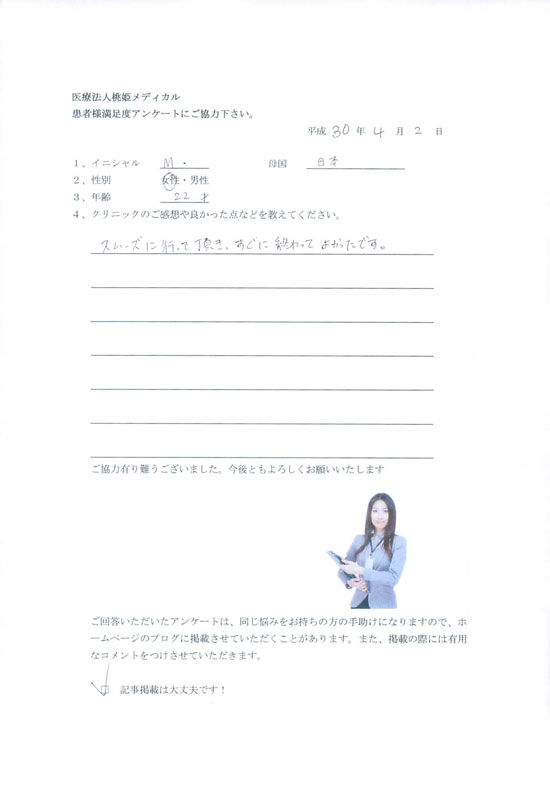 医療法人桃姫メディカル
患者様満足度アンケートにご協力下さい。
平成 30 年 4 月 2 日
1、イニシャル M ・ 母国 日本
2、性別 女性・男性
3、年齢 22 才
4、クリニックのご感想や良かった点などを教えてください。
スムーズに行って頂き、すぐに終わってよかったです。
ご協力有り難うございました。今後ともよろしくお願いいたします
ご回答いただいたアンケートは、同じ悩みをお持ちの方の手助けになりますので、ホ
ームページのブログに掲載させていただくことがあります。また、掲載の際には有用
なコメントをつけさせていただきます。
記事掲載は大丈夫です！